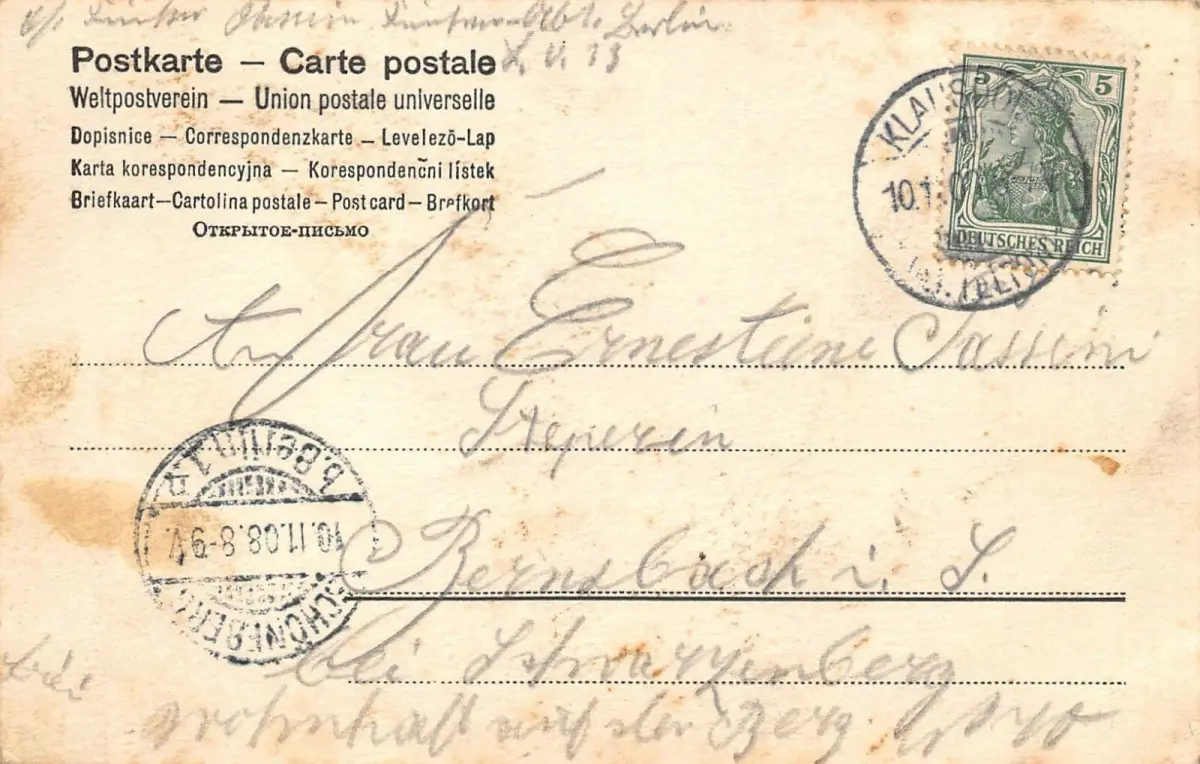 Berlin
Postkarte — Carte postale
Weltpostverein — Union postale universelle
Dopisnice — Correspondenzkarte — Levelező-Lap
Karta korespondencyjna — Korespondenční lístek
Briefkaart—Cartolina postale—Post card—Brefkort
Открытое-письмо
5 5
DEUTSCHES REICH
KLAUSDO
10.11.08
An Frau Ernestine Sassini
b. Berlin 1
10.11.08.8-9V.
SCHÖNEBERG
Bernsbach i. S.
bei Schwarzenberg
wohnhaft auf der Berg